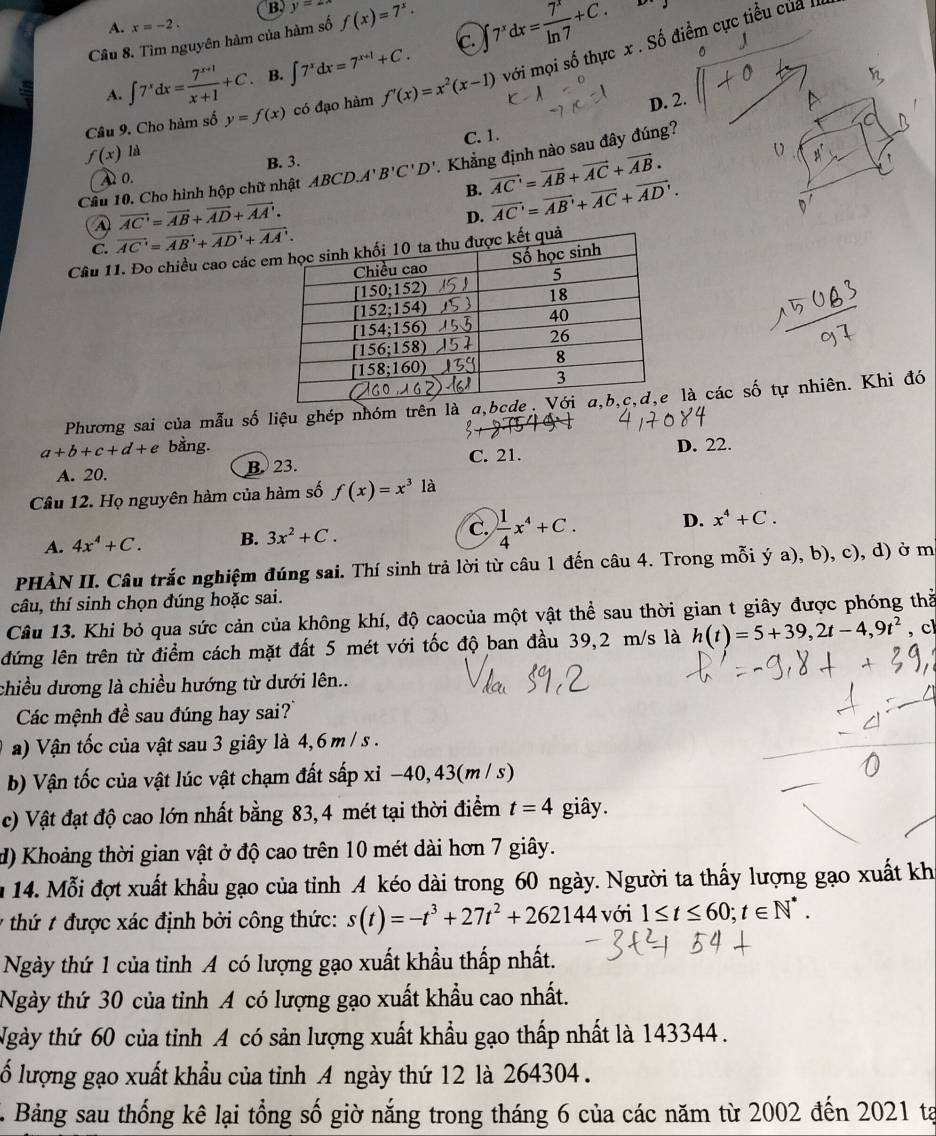 A. x = -2 .
B. y =
Câu 8. Tìm nguyên hàm của hàm số f(x) = 7^x .
A. ∫7^x dx = 7^(x+1)/(x+1) + C . B. ∫7^x dx = 7^(x+1) + C . C. ∫7^x dx = 7^x/ln 7 + C .
Câu 9. Cho hàm số y = f(x) có đạo hàm f'(x) = x²(x-1) với mọi số thực x . Số điểm cực tiểu của
x-1=0
→ x=1
f(x) là
A. 0.
B. 3.
C. 1.
D. 2.
Câu 10. Cho hình hộp chữ nhật ABCD.A'B'C'D'. Khẳng định nào sau đây đúng?
A. AC' = AB + AD + AA'.
B. AC' = AB + AC + AB .
C. AC' = AB' + AD' + AA'.
D. AC' = AB' + AC + AD' .
Câu 11. Đo chiều cao các em học sinh khối 10 ta thu được kết quả
Chiều cao Số học sinh
[150;152) 151 5
[152;154) 153 18
[154;156) 155 40
[156;158) 157 26
[158;160) 159 8
[160.162) 161 3
15083/97
Phương sai của mẫu số liệu ghép nhóm trên là a,bcde . Với a,b,c,d,e là các số tự nhiên. Khi đó
4,7084
a+b+c+d+e bằng.
A. 20.
B. 23.
C. 21.
D. 22.
Câu 12. Họ nguyên hàm của hàm số f(x) = x³ là
A. 4x⁴ + C .
B. 3x² + C .
C. 1/4 x⁴ + C .
D. x⁴ + C .
PHẦN II. Câu trắc nghiệm đúng sai. Thí sinh trả lời từ câu 1 đến câu 4. Trong mỗi ý a), b), c), d) ở m
câu, thí sinh chọn đúng hoặc sai.
Câu 13. Khi bỏ qua sức cản của không khí, độ caocủa một vật thể sau thời gian t giây được phóng thẳ
đứng lên trên từ điểm cách mặt đất 5 mét với tốc độ ban đầu 39,2 m/s là h(t) = 5+39,2t-4,9t² , ch
chiều dương là chiều hướng từ dưới lên..
39,2
= -9,8t + 39,
Các mệnh đề sau đúng hay sai?
a) Vận tốc của vật sau 3 giây là 4,6 m / s .
b) Vận tốc của vật lúc vật chạm đất sấp xỉ -40,43(m / s)
c) Vật đạt độ cao lớn nhất bằng 83,4 mét tại thời điểm t = 4 giây.
d) Khoảng thời gian vật ở độ cao trên 10 mét dài hơn 7 giây.
14. Mỗi đợt xuất khẩu gạo của tỉnh A kéo dài trong 60 ngày. Người ta thấy lượng gạo xuất kh
thứ t được xác định bởi công thức: s(t) = -t³ + 27t² + 262144 với 1 ≤ t ≤ 60; t ∈ N* .
-3t²+ 54t
Ngày thứ 1 của tỉnh A có lượng gạo xuất khẩu thấp nhất.
Ngày thứ 30 của tỉnh A có lượng gạo xuất khẩu cao nhất.
Ngày thứ 60 của tỉnh A có sản lượng xuất khẩu gạo thấp nhất là 143344 .
ố lượng gạo xuất khẩu của tỉnh A ngày thứ 12 là 264304 .
. Bảng sau thống kê lại tổng số giờ nắng trong tháng 6 của các năm từ 2002 đến 2021 tạ